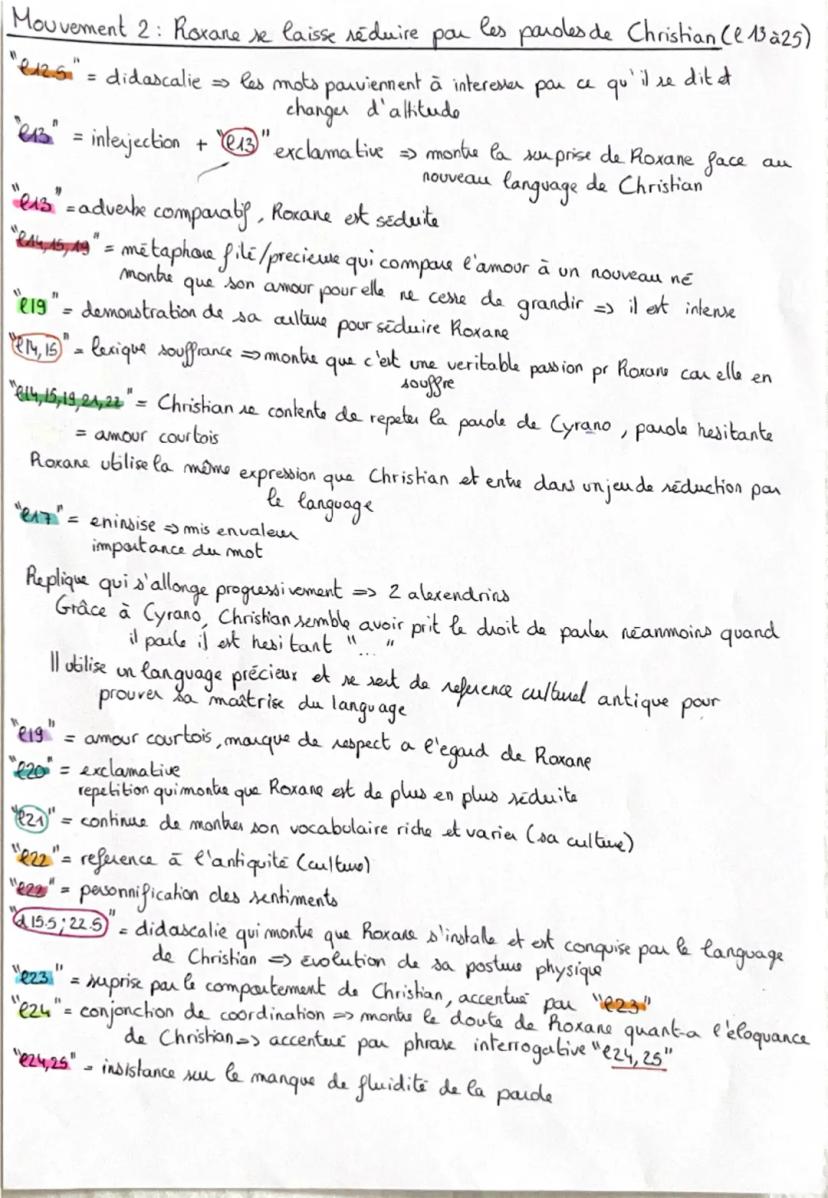 Mouvement 2 : Roxane se laisse séduire par les paroles de Christian (l 13 à 25)
"l12.5" = didascalie => les mots parviennent à interesser par ce qu'il se dit et
changer d'attitude
"l13" = interjection + "l13" exclamative => montre la surprise de Roxane face au
nouveau language de Christian
"l13" = adverbe comparatif, Roxane est séduite
"l14,15,19" = métaphore filé/precieuse qui compare l'amour à un nouveau né
montre que son amour pour elle ne cesse de grandir => il est intense
"l19" = demonstration de sa culture pour séduire Roxane
"l14,15" = lexique souffrance => montre que c'est une veritable passion pr Roxane car elle en
souffre
"l14,15,19,21,22" = Christian se contente de repeter la parole de Cyrano, parole hesitante
= amour courtois
Roxane utilise la même expression que Christian et entre dans un jeu de séduction par
le language
"l17" = eninsise => mis en valeur
importance du mot
Replique qui s'allonge progressivement => 2 alexendrins
Grâce à Cyrano, Christian semble avoir prit le droit de parler néanmoins quand
il parle il est hesitant "..."
Il utilise un language précieux et se sert de reference culturel antique pour
prouver sa maîtrise du language
"l19" = amour courtois, marque de respect a l'egard de Roxane
"l20" = exclamative
repetition qui montre que Roxane est de plus en plus séduite
"l21" = continue de montrer son vocabulaire riche et varier (sa culture)
"l22" = reference à l'antiquité (culture)
"l22" = personnification des sentiments
"d 15.5 ; 22.5" = didascalie qui montre que Roxane s'installe et est conquise par le language
de Christian => évolution de sa posture physique
"l23" = suprise par le comportement de Christian, accentué par "l23"
"l24" = conjonction de coordination => montre le doute de Roxane quant-a l'éloquance
de Christian => accentué par phrase interrogative "l24, 25"
"l24,25" = insistance sur le manque de fluidité de la parole